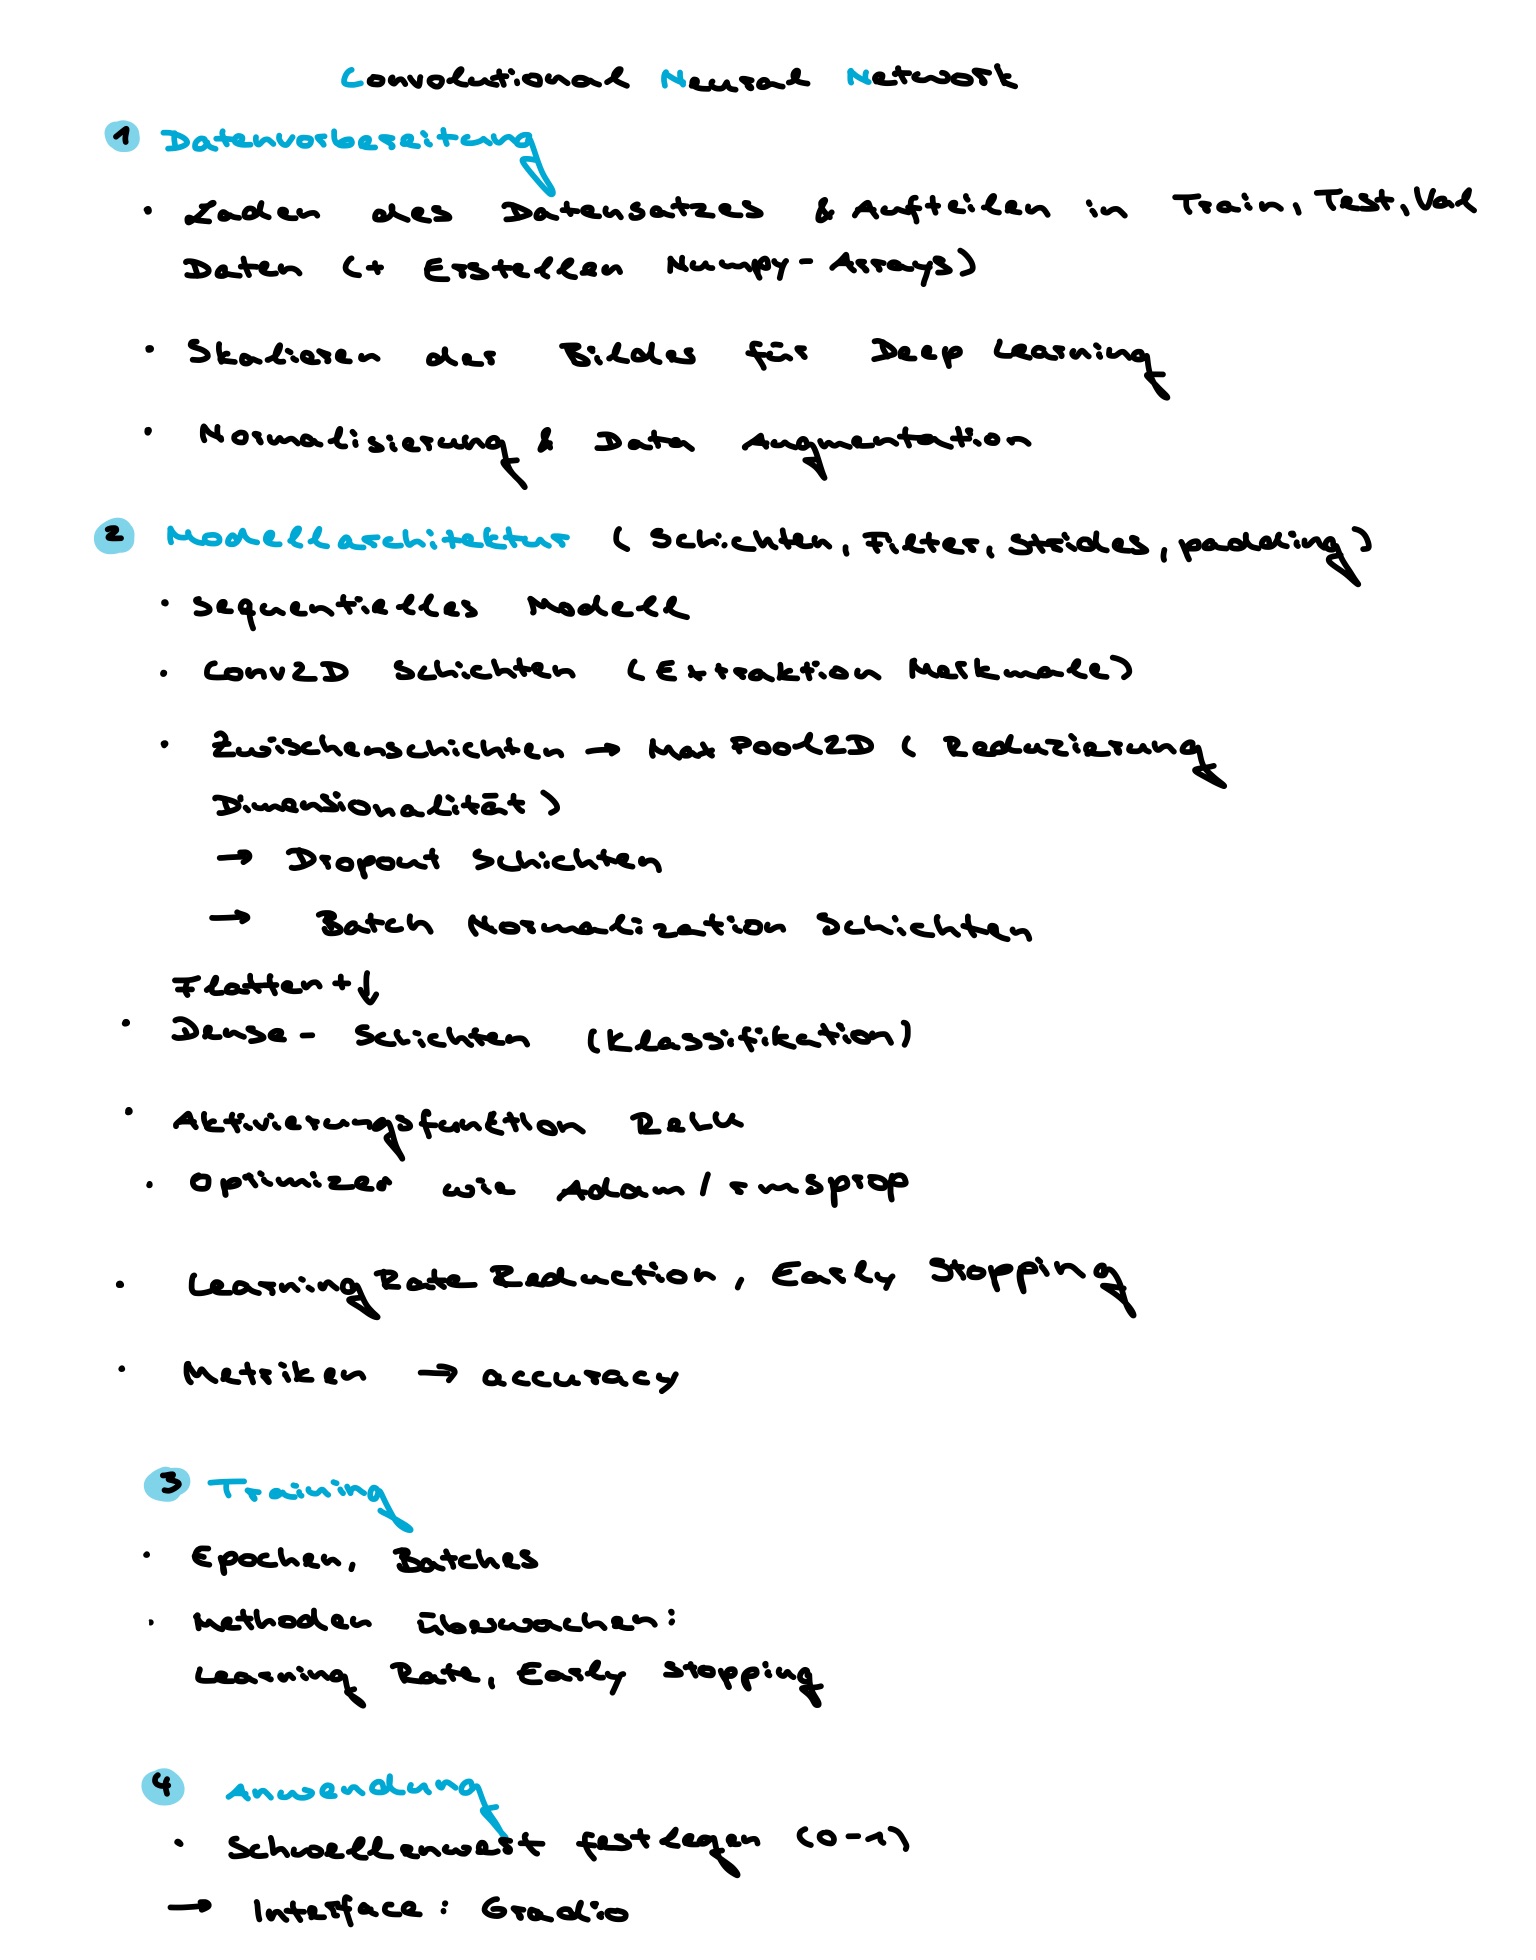 Convolutional Neural Network
1 Datenvorbereitung
· Laden des Datensatzes & Aufteilen in Train, Test, Val
Daten (+ Erstellen Numpy-Arrays)
· Skalieren der Bildes für Deep Learning
· Normalisierung & Data Augmentation
2 Modellarchitektur (Schichten, Filter, Strides, padding)
· Sequentielles Modell
· Conv2D Schichten (Extraktion Merkmale)
· Zwischenschichten → MaxPool2D (Reduzierung
Dimensionalität)
→ Dropout Schichten
→ Batch Normalization Schichten
Flatten + ↓
· Dense - Schichten (Klassifikation)
· Aktivierungsfunktion ReLU
· Optimizer wie Adam / rmsprop
· Learning Rate Reduction, Early Stopping
· Metriken → accuracy
3 Training
· Epochen, Batches
· Methoden überwachen:
Learning Rate, Early Stopping
4 Anwendung
· Schwellenwert festlegen (0-1)
→ Interface: Gradio